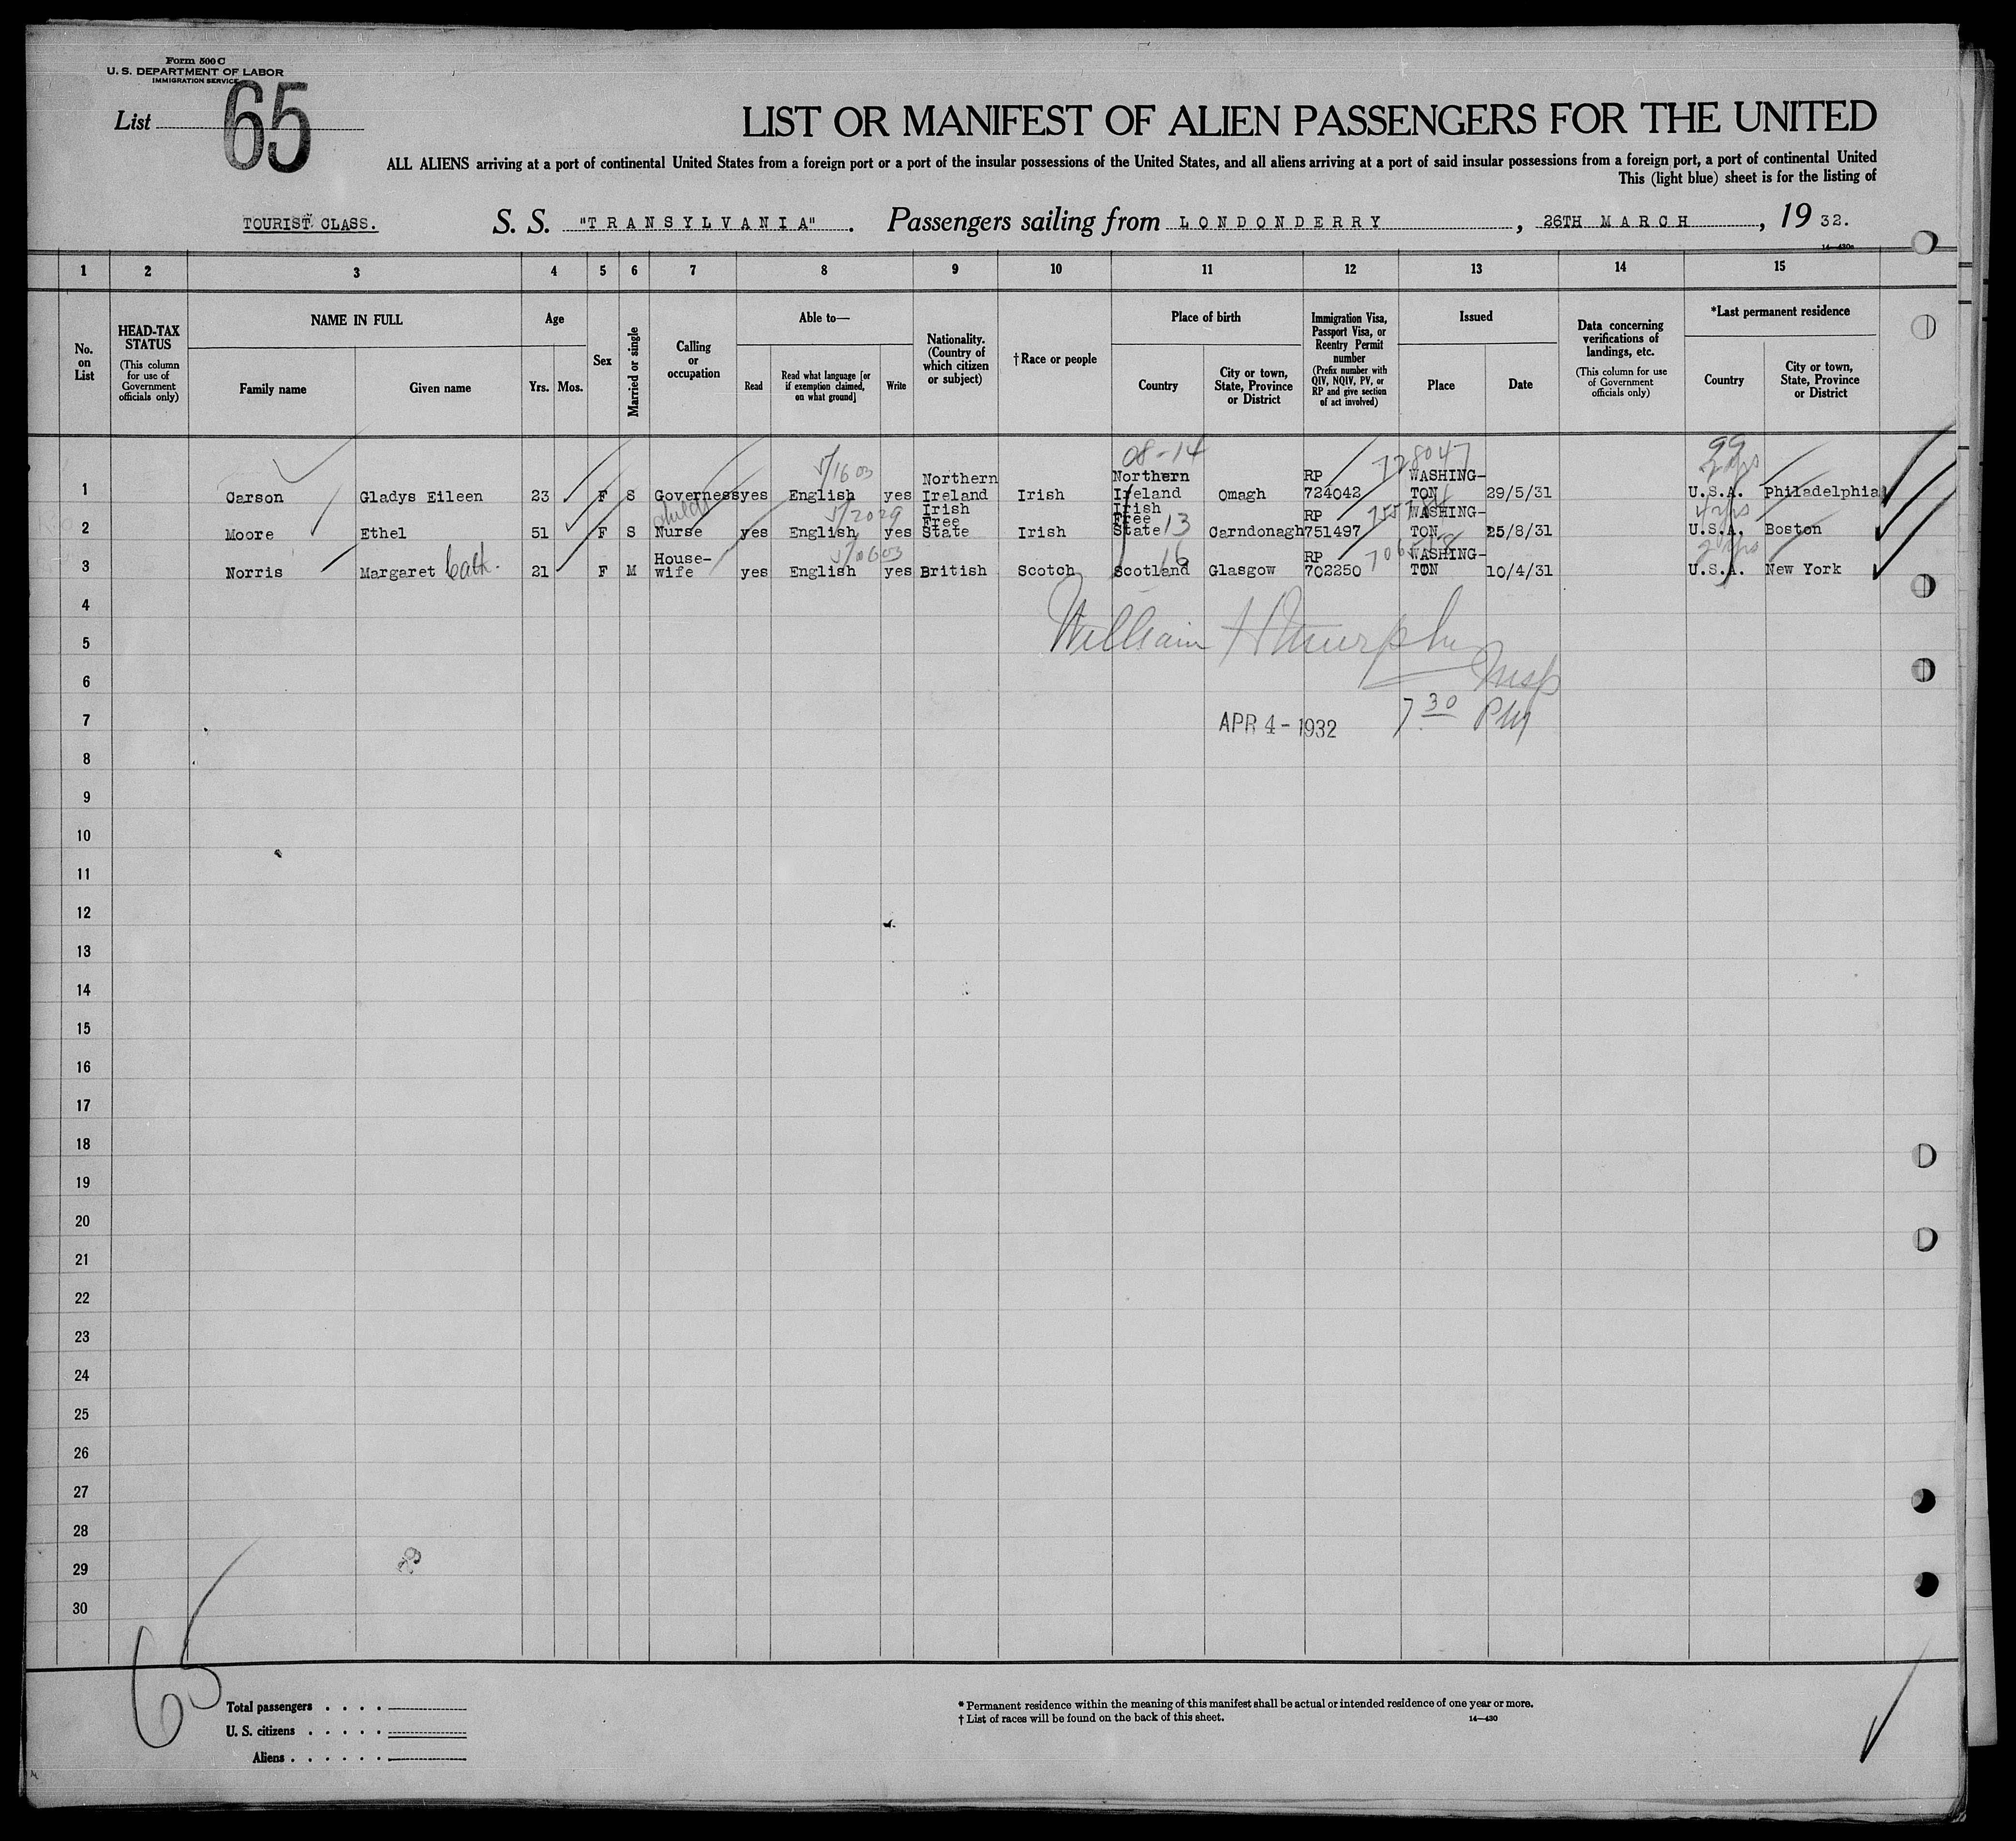 Form 500 C
U. S. DEPARTMENT OF LABOR
IMMIGRATION SERVICE
List 65
LIST OR MANIFEST OF ALIEN PASSENGERS FOR THE UNITED
ALL ALIENS arriving at a port of continental United States from a foreign port or a port of the insular possessions of the United States, and all aliens arriving at a port of said insular possessions from a foreign port, a port of continental United
This (light blue) sheet is for the listing of
TOURIST CLASS. S. S. "TRANSYLVANIA". Passengers sailing from LONDONDERRY, 26TH MARCH, 19 32.
14—430a
1 2 3 4 5 6 7 8 9 10 11 12 13 14 15
No. on List
HEAD-TAX STATUS
(This column for use of Government officials only)
NAME IN FULL
Family name
Given name
Age
Yrs. Mos.
Sex
Married or single
Calling or occupation
Able to—
Read
Read what language [or if exemption claimed, on what ground]
Write
Nationality. (Country of which citizen or subject)
†Race or people
Place of birth
Country
City or town, State, Province or District
Immigration Visa, Passport Visa, or Reentry Permit number
(Prefix number with QIV, NQIV, PV, or RP and give section of act involved)
Issued
Place
Date
Data concerning verifications of landings, etc.
(This column for use of Government officials only)
*Last permanent residence
Country
City or town, State, Province or District
08-14 728047
1 Carson Gladys Eileen 23 F S Governess yes English yes Northern Ireland Irish Northern Ireland Omagh RP 724042 WASHINGTON 29/5/31 U.S.A. Philadelphia
2 Moore Ethel 51 F S Nurse yes English yes Irish Free State Irish Irish Free State 13 Carndonagh RP 751497 WASHINGTON 25/8/31 U.S.A. Boston
3 Norris Margaret Cath. 21 F M House-wife yes English yes British Scotch Scotland 16 Glasgow RP 702250 WASHINGTON 10/4/31 U.S.A. New York
4
5
William H Murphy
6
Insp
7
APR 4 - 1932 7 30 PM
8
9
10
11
12
13
14
15
16
17
18
19
20
21
22
23
24
25
26
27
28
29
30
65
Total passengers . . . .
U. S. citizens . . . . .
Aliens . . . . . .
* Permanent residence within the meaning of this manifest shall be actual or intended residence of one year or more.
† List of races will be found on the back of this sheet.
14—430